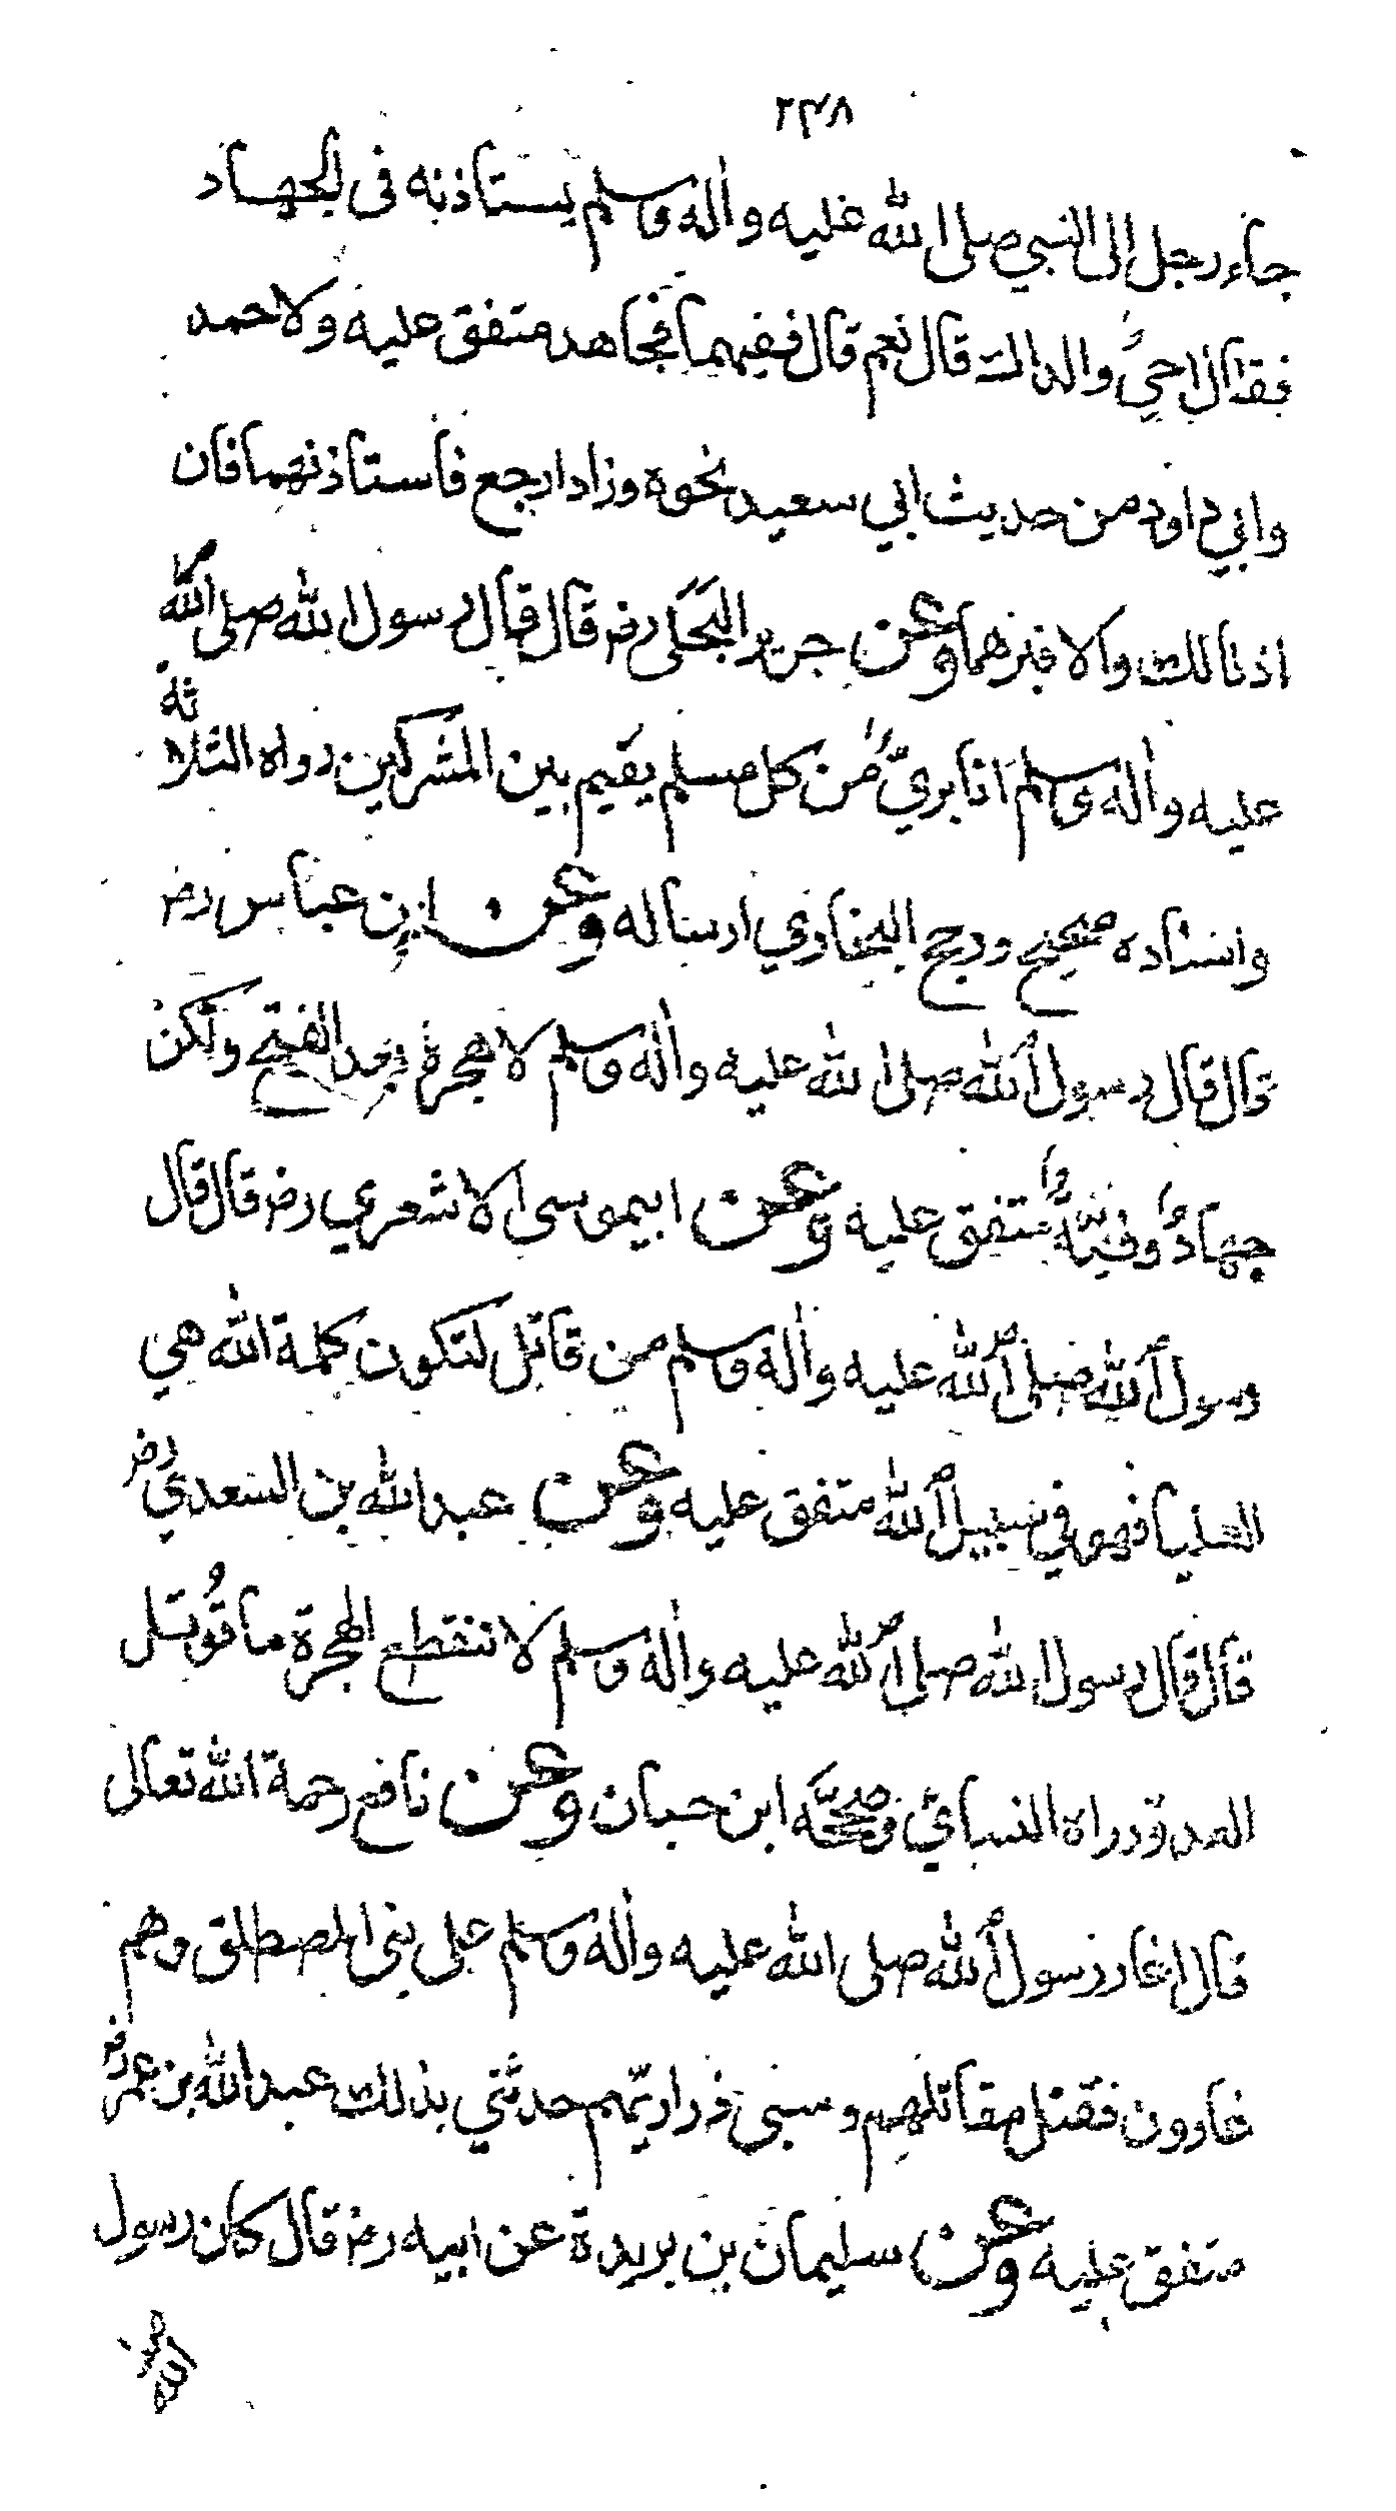 ٢٣٨
جاء رجل الى النبي صلى الله عليه واله وسلم يستاذنه فى الجهاد
فقال احيٌ والداك قال نعم قال ففيهما فجاهد متفق عليه ولاحمد
وابي داود من حديث ابي سعيد نحوه وزاد ارجع فاستاذنهما فان
اذنا لك والا فبرهما وعن جرير البجلى رضـ قال قال رسول الله صلى الله
عليه واله وسلم انا بريٌ من كل مسلم يقيم بين المشركين رواه الثلاثة
واسناده صحيح ورجح البخاري ارساله وعن ابن عباس رضـ
قال قال رسول الله صلى الله عليه واله وسلم لا هجرة بعد الفتح ولكن
جهادٌ ونيةٌ متفق عليه وعن ابيموسى الاشعري رضـ قال قال
رسول الله صلى الله عليه واله وسلم من قاتل لتكون كلمة الله هي
العليا فهو في سبيل الله متفق عليه وعن عبد الله بن السعدي رضـ
قال قال رسول الله صلى الله عليه واله وسلم لا تنقطع الهجرة ما قُوتل
العدو رواه النسائي وصححَّه ابن حبان وعن نافع رحمة الله تعالى
قال اغار رسول الله صلى الله عليه واله وسلم على بنى المصطلق وهم
غارون فقتل مقاتلهم وسبى ذراريّهم حدثني بذلك عبد الله بن عمر رضـ
متفق عليه وعن سليمان بن بريدة عن ابيه رضـ قال كان رسول